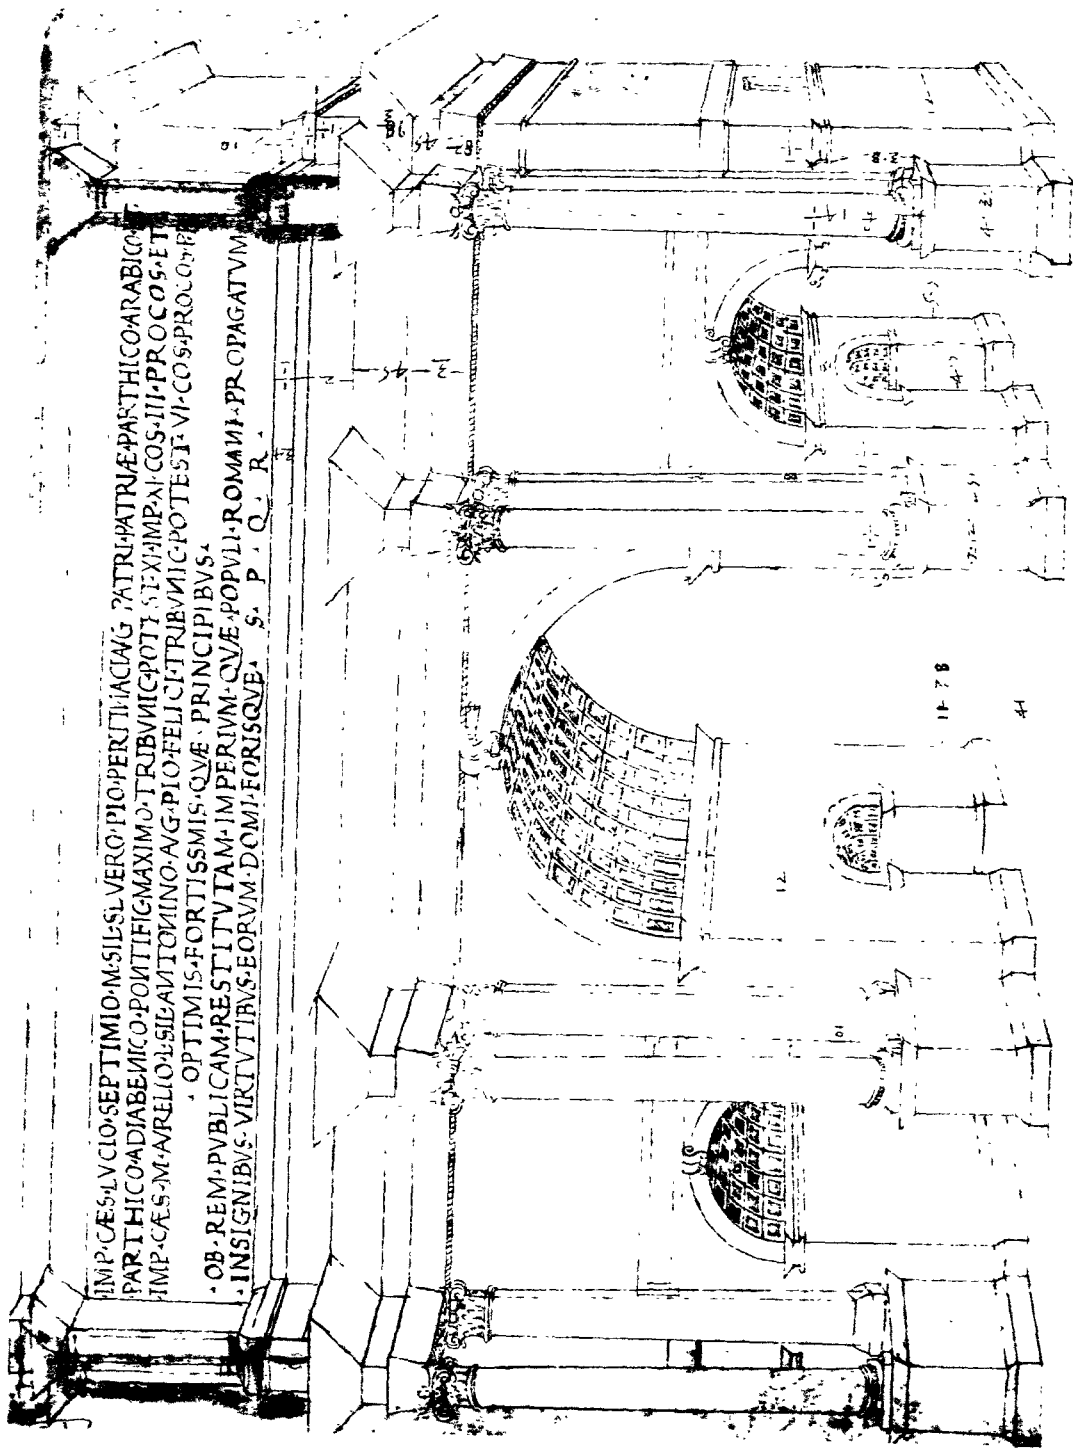 IMP·CÆS·LVCIO·SEPTIMIO·M·SIL·SLVERO·PIO·PERTINACI·AVG PATRI·PATRIÆ·PARTHICO·ARABICO·ET
PARTHICO·ADIABENICO·PONTIFIC·MAXIMO·TRIBVNIC·POTEST·XI·IMP·XI·COS·III·PROCOS·ET
IMP·CÆS·M·AVRELIO·L·SIL·ANTONINO·AVG·PIO·FELICI·TRIBVNIC·POTEST·VI·COS·PROCOS·P·P
·OPTIMIS·FORTISSMIS·QVÆ·PRINCIPIBVS·
·OB·REM·PVBLICAM·RESTITVTAM·IMPERIVM·QVÆ·POPVLI·ROMANI·PROPAGATVM
·INSIGNIBVS·VIRTVTIBVS·EORVM·DOMI·FORISQVE· S·P·Q·R·
12
10
41